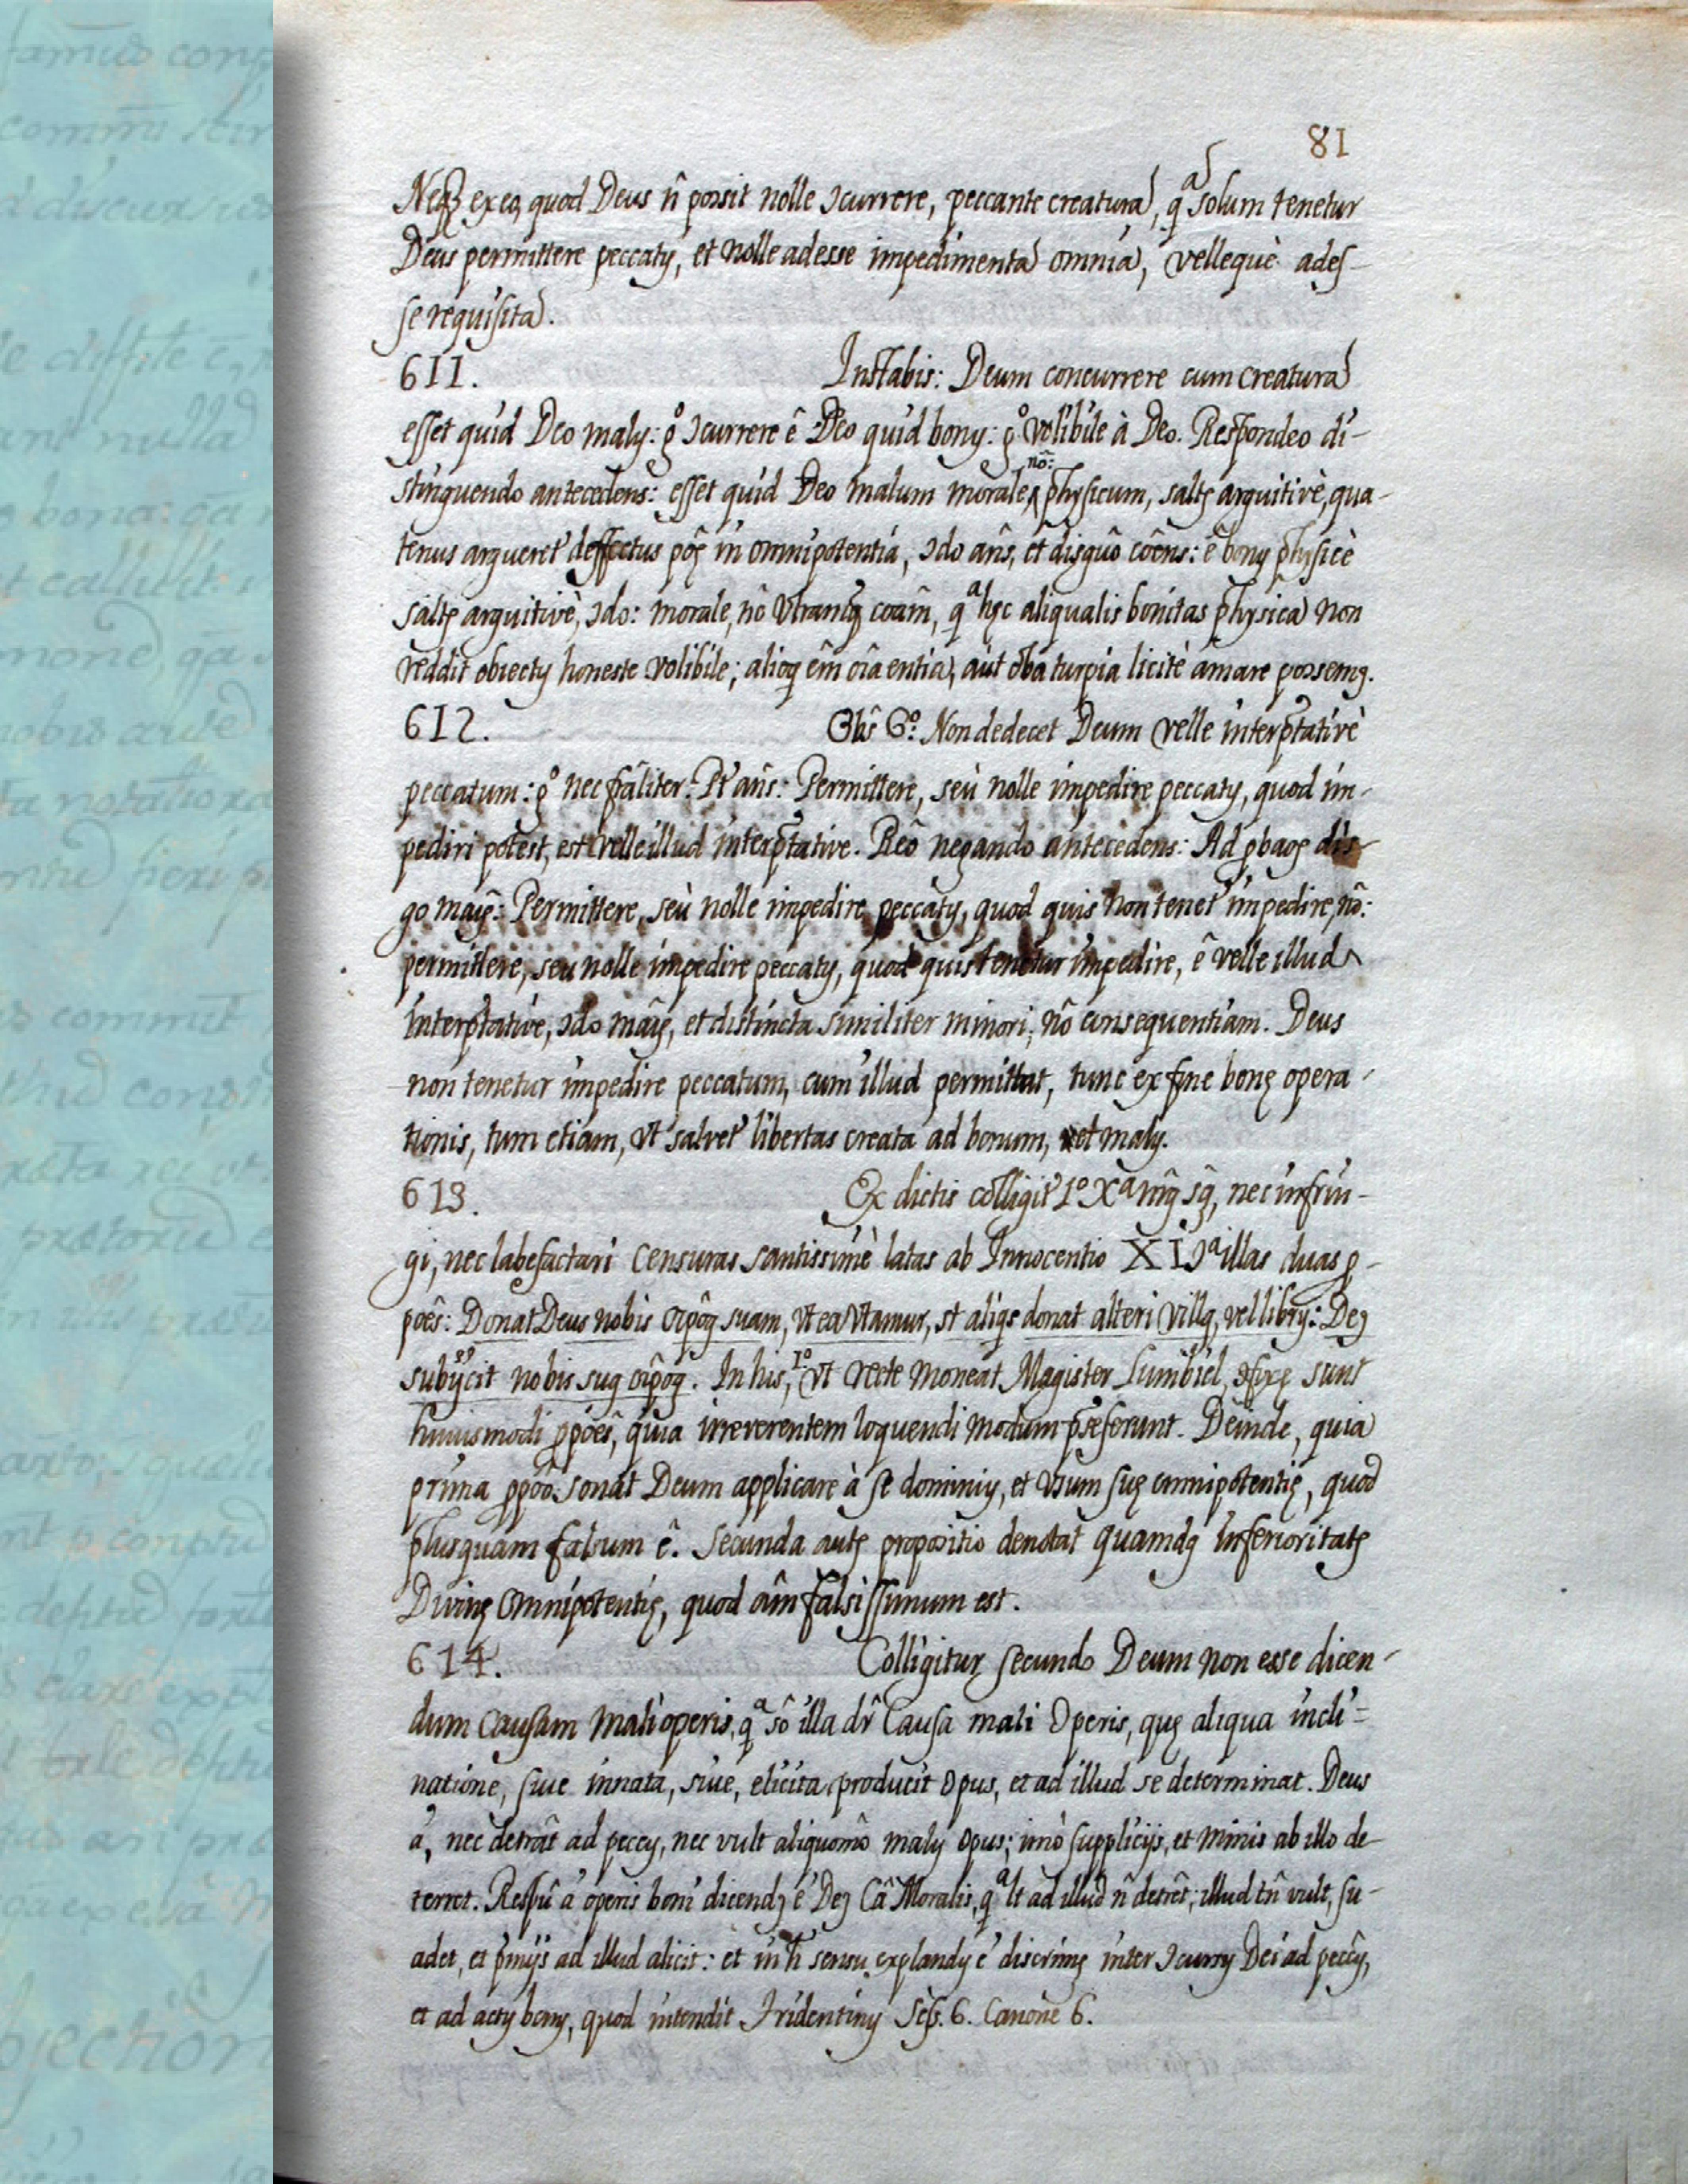 81
Neqȝ ex eo, quod Deus ñ possit nolle ɔcurrere, peccante creatura, qª solum tenetur
Deus permittere peccatȳ, et nolle adesse impedimenta omnia, velleque ades-
se requisita.
611. Instabis: Deum concurrere cum creatura
esset quid Deo malȳ: gº ɔcurrere ê Deo quid bonȳ: gº volibile à Deo. Respondeo di-
stinguendo antecedens: esset quid Deo malum morale, nô: physicum, saltȩ arguitivè, qua-
tenus argueret' deffectus pôȩ in omnipotentia, ɔdo añs, et disguô côens: ê bonȳ physicè
saltȩ arguitivè, ɔdo: morale, nô utramq coâm, qª hȩc aliqualis bonitas physica non
reddit obiectȳ honeste volibile; alioq êm oîa entia, aut oba turpia licitè amare possemȝ.
612. Obs 6º: Non dedecet Deum velle interptativè
peccatum: gº nec frâliter. Pt' añs: Permittere, seù nolle impedire peccatȳ, quod im-
pediri potest, est velle illud interptative. Reô negando antecedens: Ad pbaoȩ dis-
go maiȩ: Permittere, seù nolle impedire peccatȳ, quod quis non tenet' impedire, nô:
permittere, seu nolle impedire peccatȳ, quod quis tenetur impedire, ê velle illud
interptative, ɔdo mâiȩ, et distincta similiter minori, nô consequentiam. Deus
non tenetur impedire peccatum, cum illud permittat, tunc ex fine bonȩ opera-
tionis, tum etiam, vt salvet' libertas creata ad bonum, et malȳ.
613. Ex dictis colligit' 1º Xª nîg sg, nec infrin-
gi, nec labefactari censuras santissimè latas ab Innocentio XI ɔª illas duas p-
poês: Donat Deus nobis oîpôg suam, vt ea vtamur, st aliqs donat alteri villą, vel librȳ: Deȝ
subijcit nobis suą oîpôg. In his, 1º: vt recte moneat Magister Lumbiel, ɔfixȩ sunt
huiusmodi ppoês, quia irreverentem loquendi modum pseferunt. Deinde, quia
prima ppoô sonat Deum applicare à se dominiȳ, et vsum suȩ omnipotentiȩ, quod
plusquam falsum ê. Secunda autȩ propositio denotat quamdą inferioritatȩ
Divinȩ omnipotentiȩ, quod oîm falsissimum est.
614. Colligitur secundo Deum non esse dicen-
dum causam mali operis, qª sô illa dr̂ Causa mali operis, quȩ aliqua incli-
natione, siue innata, siue, elicita producit opus, et ad illud se determinat. Deus
a', nec detrât ad peccȳ, nec vult aliquomô malȳ opus; imò supplicijs, et minis ab illo de-
terret. Respû a' operis boni dicendȝ ê Deȝ Câ Moralis, qª lt ad illud ñ detrêt; illud tñ vult, su-
adet, et pmijs ad illud alicit: et in h̄ sensu explandȳ ê discrimȩ inter ɔcursȳ Dei ad peccȳ,
et ad actȳ bonȳ, quod intendit Tridentinȳ Sess. 6. Canone 6.